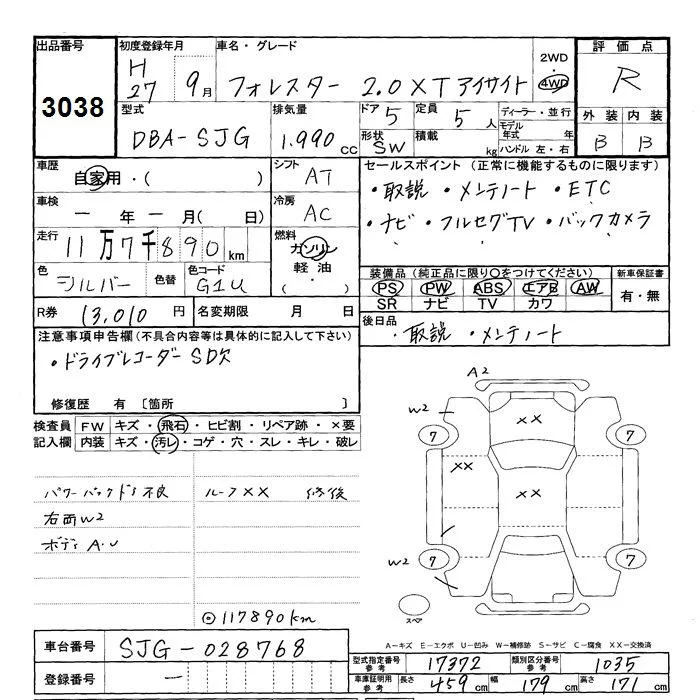 出品番号 初度登録年月 車名・グレード 2WD 評価点
3038 H27 9月 フォレスター 2.0XT アイサイト 4WD R
型式 排気量 ドア 5 定員 5人 ディーラー・並行 外装 内装
DBA-SJG 1.990cc 形状 SW 積載 kg モデル年式 年 B B
ハンドル 左・右
車歴 自家用・( ) シフト AT セールスポイント (正常に機能するものに限ります)
・取説 ・メンテノート ・ETC
車検 ー年ー月( 日) 冷房 AC ・ナビ・フルセグTV・バックカメラ
走行 11万7千890km 燃料 ガソリン
軽油
・( )
色 シルバー 色替 色コード G1U 装備品 (純正品に限り○をつけてください) 新車保証書
PS PW ABS エアB AW 有・無
SR ナビ TV カワ
R券 13,010円 名変期限 月 日 後日品
・取説 ・メンテノート
注意事項申告欄 (不具合内容等は具体的に記入して下さい)
・ドライブレコーダー SD欠
修復歴 有 〔箇所 〕
検査員 FW キズ・飛石・ヒビ割・リペア跡・×要
記入欄 内装 キズ・汚レ・コゲ・穴・スレ・キレ・破レ
パワーバックドア不良 ルーフXX 修復
右面W2
ボディA.U
◎117890km
A2
W2 XX
7 7
XX XX
W2 7 7
スペア
A-キズ E-エクボ U-凹み W-補修跡 S-サビ C-腐食 XX-交換済
車台番号 SJG-028768
登録番号 ー
型式指定番号 参考 17372 類別区分番号 参考 1035
車庫証明用 参考 長さ 459cm 幅 179cm 高さ 171cm